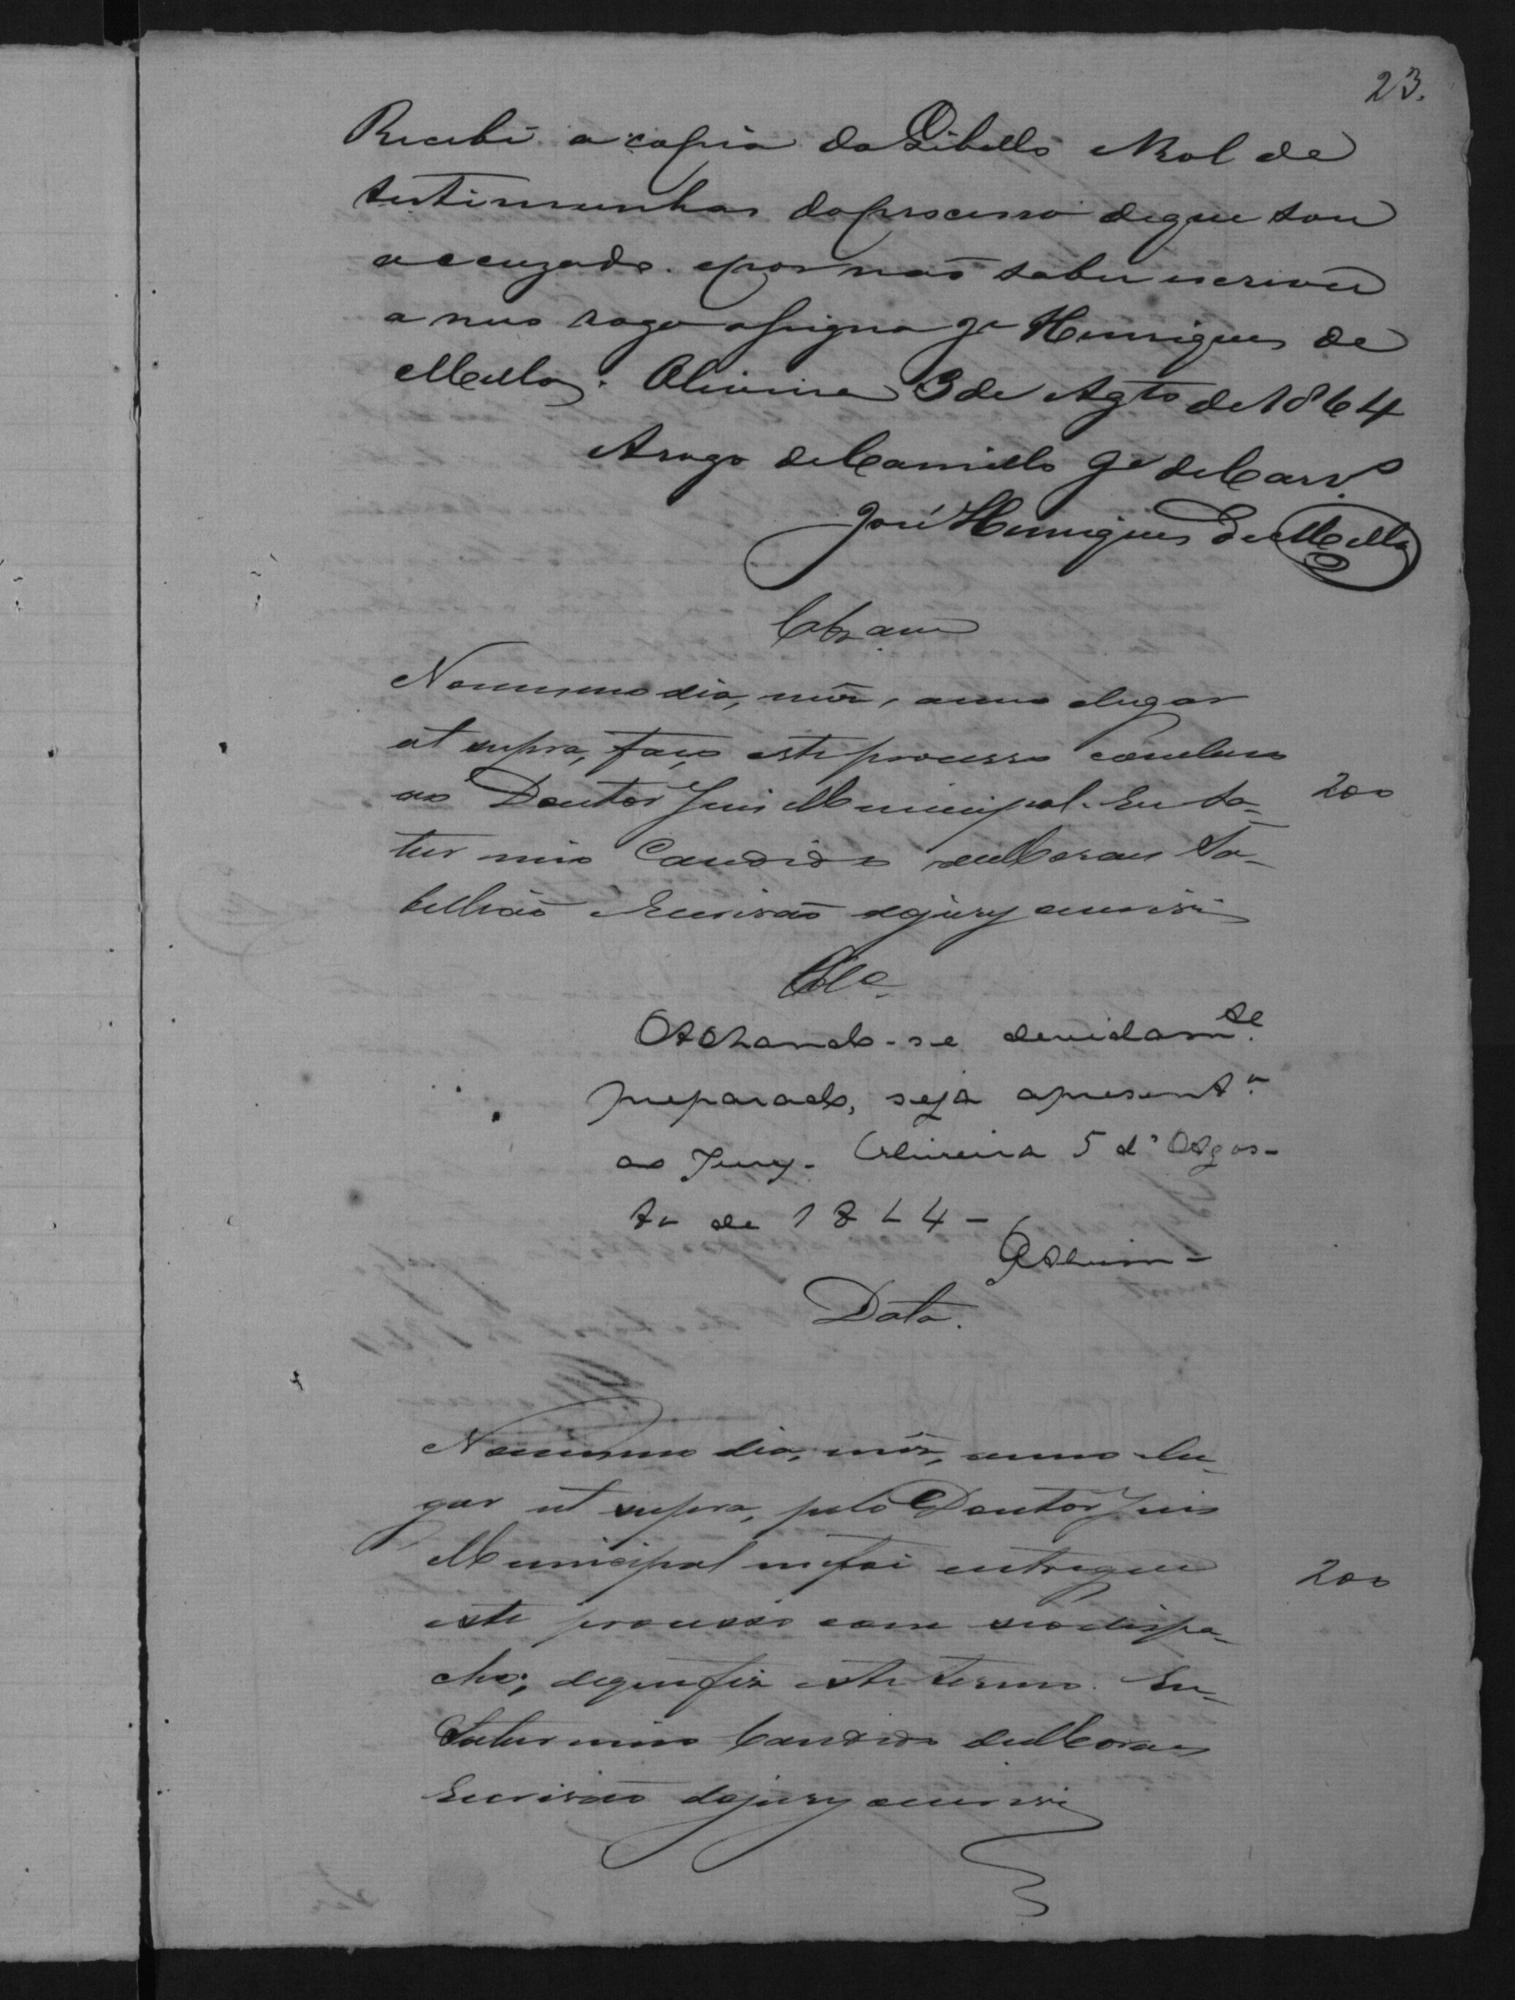 23.
Recebi a copia do Libello e Rol de
testimunhas do processo de que sou
accuzado. e por não saber escrever
a meu rogo assigna Je Henriques de
Mello. Oliveira 3 de Agto de 1864
A rogo de Camillo Je de Carvo
José Henriques de Mello
Clzam
No mesmo dia, mês, anno e lugar
ut supra, faço este processo concluso
ao Doutor Juis Municipal. Eu Sa-
200
turnino Candido de Moraes Ta-
bellião e Escrivão do jury escrevi
Clo
Achando-se devidamte
preparado, seja apresento
ao Jury. Oliveira 5 d'Agos-
to de 1864 -
Data.
No mesmo dia, mês, anno e lu-
gar ut supra, pelo Doutor Juis
Municipal me foi entregue
200
este processo com seo despa-
cho; de que fiz este termo. Eu
Saturnino Candido de Moraes
Escrivão do jury escrevi